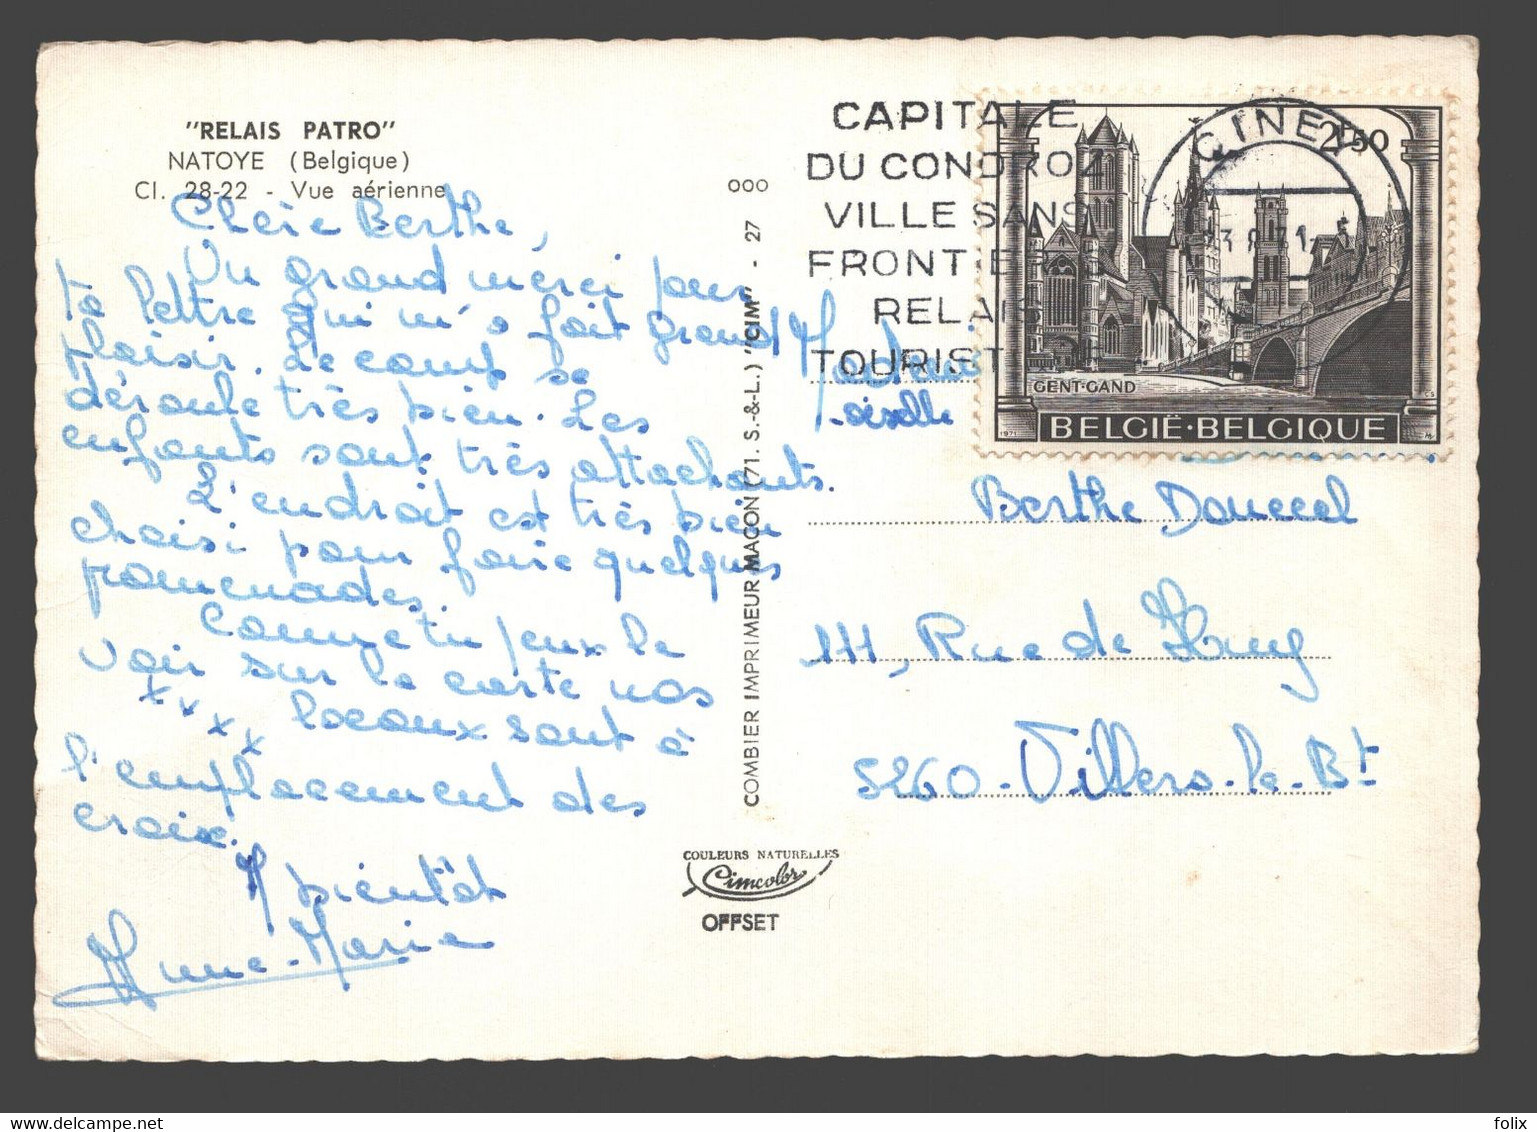 "RELAIS PATRO"
NATOYE (Belgique)
Cl. 28-22 - Vue aérienne
Chère Berthe,
Un grand merci pour
ta lettre qui m'a fait grand
plaisir. Le camp se
déroule très bien. Les
enfants sont très attachants.
L'endroit est très bien
choisi pour faire quelques
promenades.
Comme tu peux le
voir sur la carte nos
x x x x locaux sont à
l'emplacement des
croix.
A bientôt
Anne-Marie
COMBIER IMPRIMEUR MACON (71. S.-&-L.) "CIM" - 27 000
COULEURS NATURELLES
Cimcolor
OFFSET
CAPITALE
DU CONDROZ
VILLE SANS
FRONTIERES
RELAIS
TOURIST
CINEY
2F50
GENT-GAND
1971
BELGIË·BELGIQUE
-oiselle
Berthe Douccel
111, Rue de Huy
5260 - Villers-le-Bt
folix